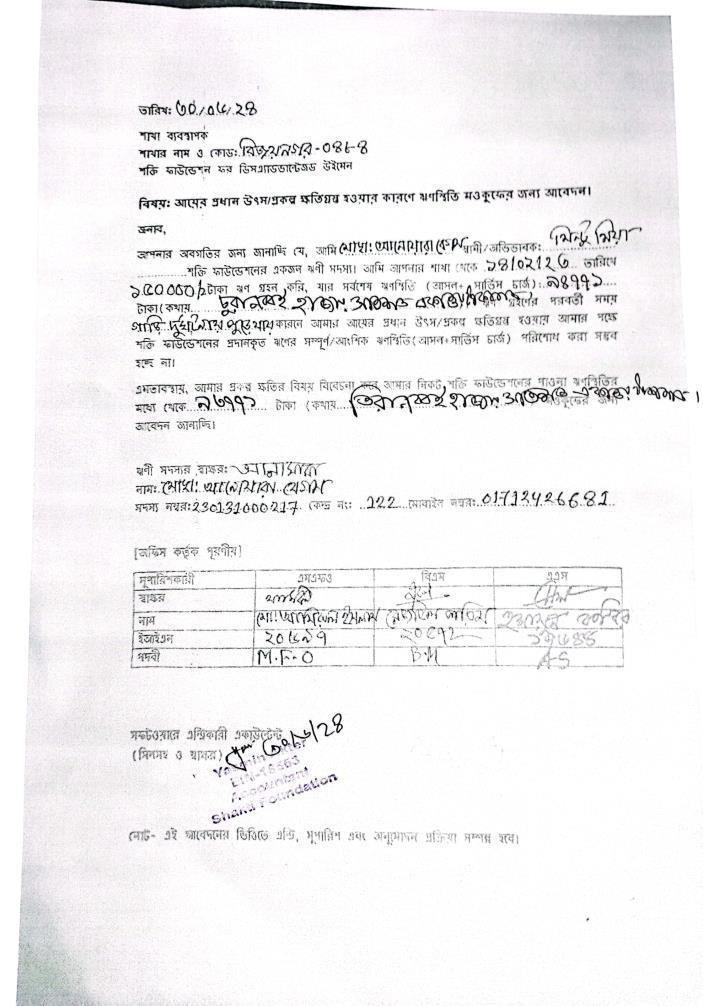 তারিখ: ৩০/০৬/২৪
শাখা ব্যবস্থাপক
শাখার নাম ও কোডঃ বিজয়নগর-০৪৮-৪
শক্তি ফাউন্ডেশন ফর ডিসএ্যাডভান্টেজড উইমেন
বিষয়: আয়ের প্রধান উৎস/প্রকল্প ক্ষতিগ্রস্ত হওয়ার কারণে ঋণস্থিতি মওকুফের জন্য আবেদন।
জনাব,
আপনার অবগতির জন্য জানাচ্ছি যে, আমি মোছা: আনোয়ারা বেগম স্বামী/অভিভাবক: মিন্টু মিয়া
শক্তি ফাউন্ডেশনের একজন ঋণী সদস্য। আমি আপনার শাখা থেকে তারিখে
১৫০০০০/ টাকা ঋণ গ্রহন করি, যার সর্বশেষ ঋণস্থিতি (আসল+সার্ভিস চার্জ): ৯৪৭৭১
টাকা(কথায় চুরানব্বই হাজার সাতশত একাত্তর গ্রহণের পরবর্তী সময়
গাড়ি দুর্ঘটনায় কারনে আমার আয়ের প্রধান উৎস/প্রকল্প ক্ষতিগ্রস্ত হওয়ায় আমার পক্ষে
শক্তি ফাউন্ডেশনের প্রদানকৃত ঋণের সম্পূর্ণ/আংশিক ঋণস্থিতি(আসল+সার্ভিস চার্জ) পরিশোধ করা সম্ভব
হচ্ছে না।
এমতাবস্থায়, আমার প্রকল্প ক্ষতির বিষয় বিবেচনা করে আমার নিকট শক্তি ফাউন্ডেশনের পাওনা ঋণস্থিতির
মধ্যে থেকে ৯৩৭৭১ টাকা (কথায় তিরানব্বই হাজার সাতশত একাত্তর মওকুফের জন্য
আবেদন জানাচ্ছি।
ঋণী সদস্যর স্বাক্ষর: আনোয়ারা
নাম: মোছা: আনোয়ারা বেগম
সদস্য নম্বর: 230131000217 কেন্দ্র নং: 122 মোবাইল নম্বর: 01712426681
[অফিস কর্তৃক পূরণীয়]
সুপারিশকারী এমএফও বিএম এএস
স্বাক্ষর
নাম মো: ইসলাম
ইআইএন
পদবী M.F.O B.M A-S
সফটওয়্যারে এন্ট্রিকারী একাউন্টেন্ট
(সিলসহ ও স্বাক্ষর)
Accountant
Shakti Foundation
নোট- এই আবেদনের ভিত্তিতে এন্ট্রি, সুপারিশ এবং অনুমোদন প্রক্রিয়া সম্পন্ন হবে।